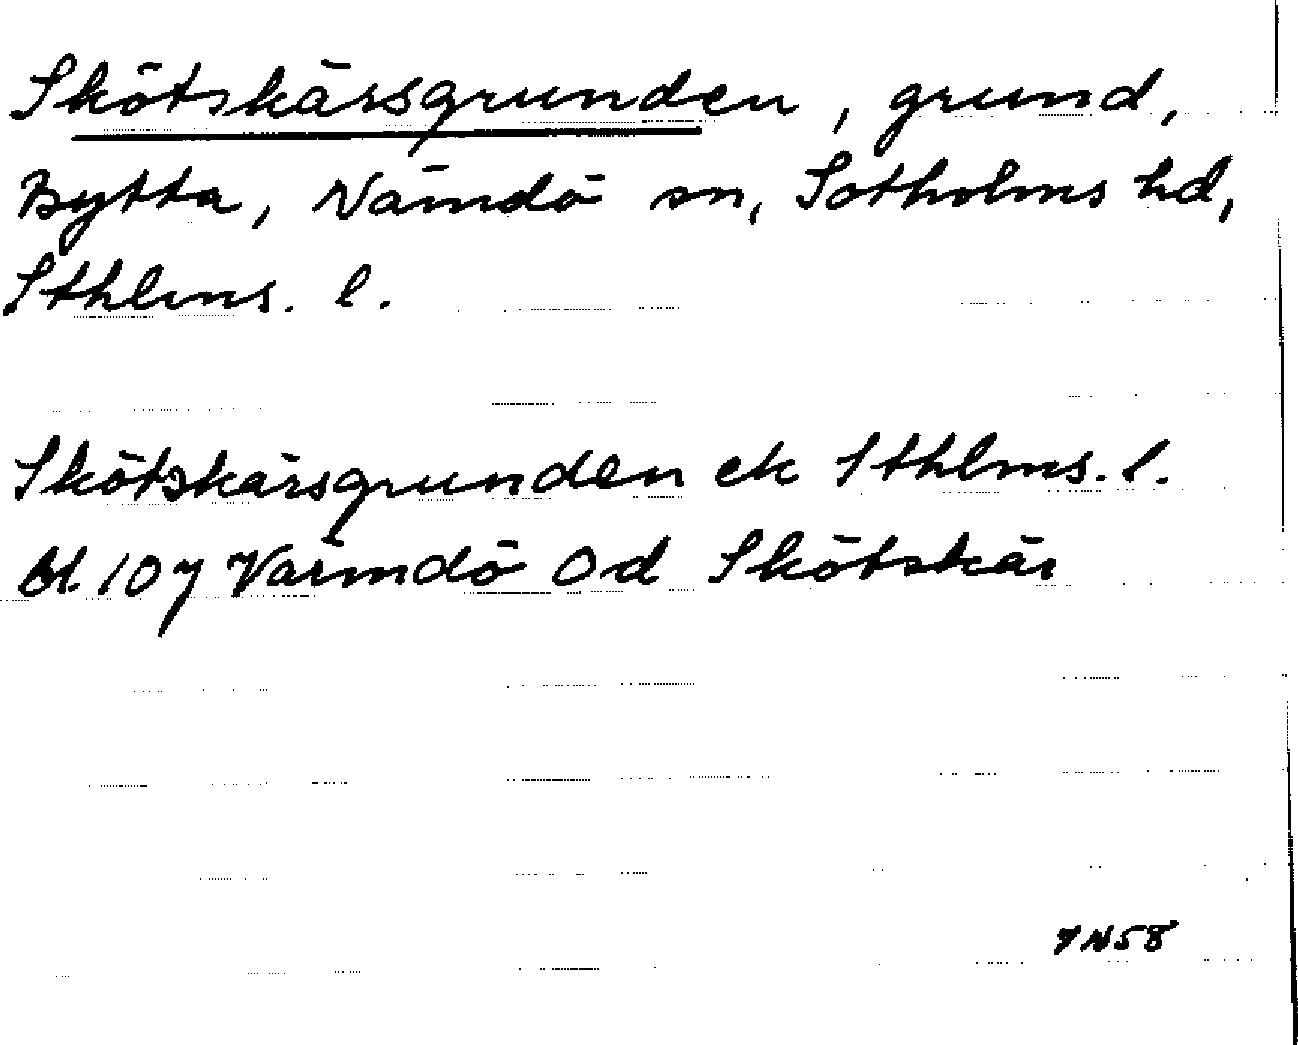 Skötskärsgrunden, grund,
Bytta, Nämdö sn, Sotholms hd,
Sthlms. l.
Skötskärsgrunden ek Sthlms. l.
bl. 107 Värmdö Od Skötskär
7N58